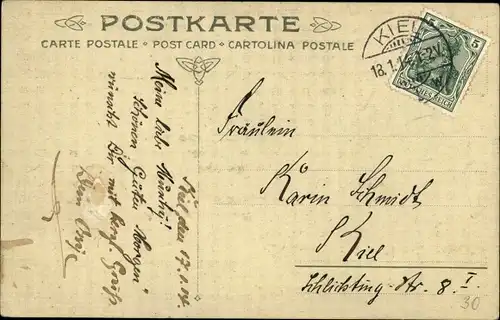 POSTKARTE
CARTE POSTALE • POST CARD • CARTOLINA POSTALE
KIEL
18.1.
5
DEUTSCHES REICH
Kiel den 17.1.14.
Meine liebe
Schönen Guten Morgen
wünscht Dir mit herzl. Gruß
Dein
Fräulein
Karin Schmidt
Kiel
Schlichting-Str. 8 I
30